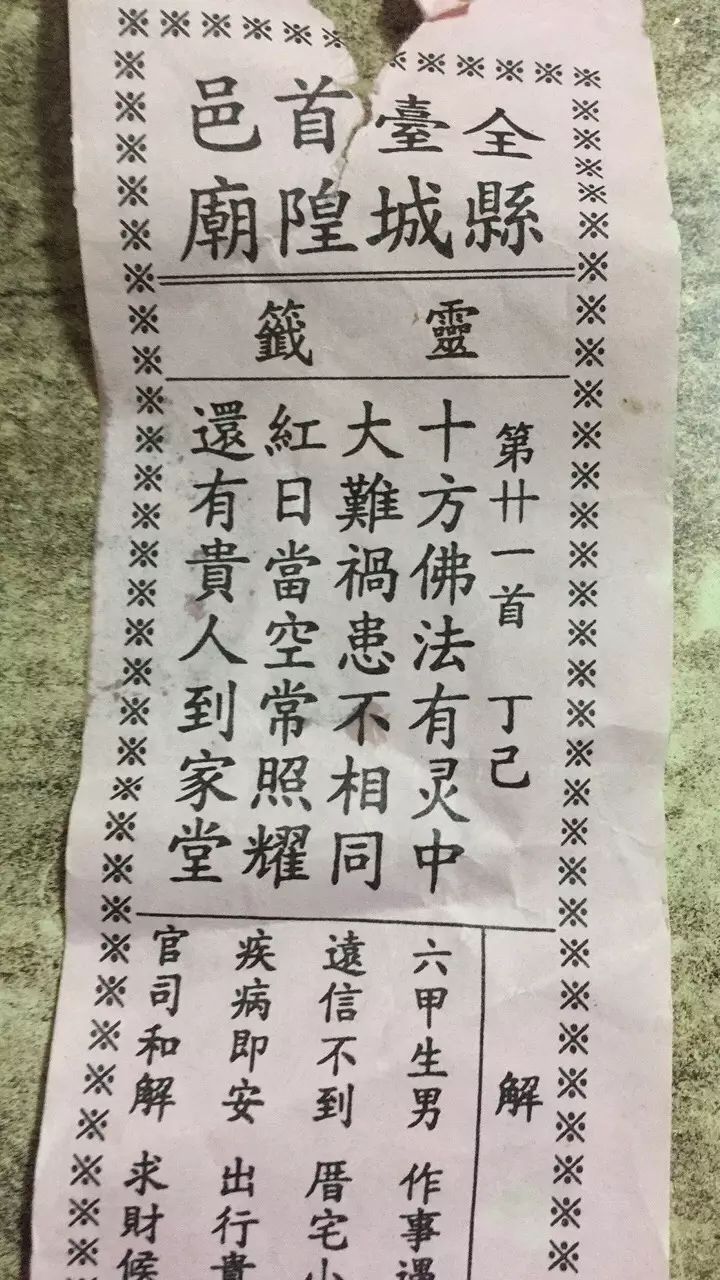 全臺首邑
縣城隍廟
靈籤
第卄一首 丁己
十方佛法有灵中
大難禍患不相同
紅日當空常照耀
還有貴人到家堂
解
六甲生男 作事遇
遠信不到 厝宅
疾病即安 出行貴
官司和解 求財候